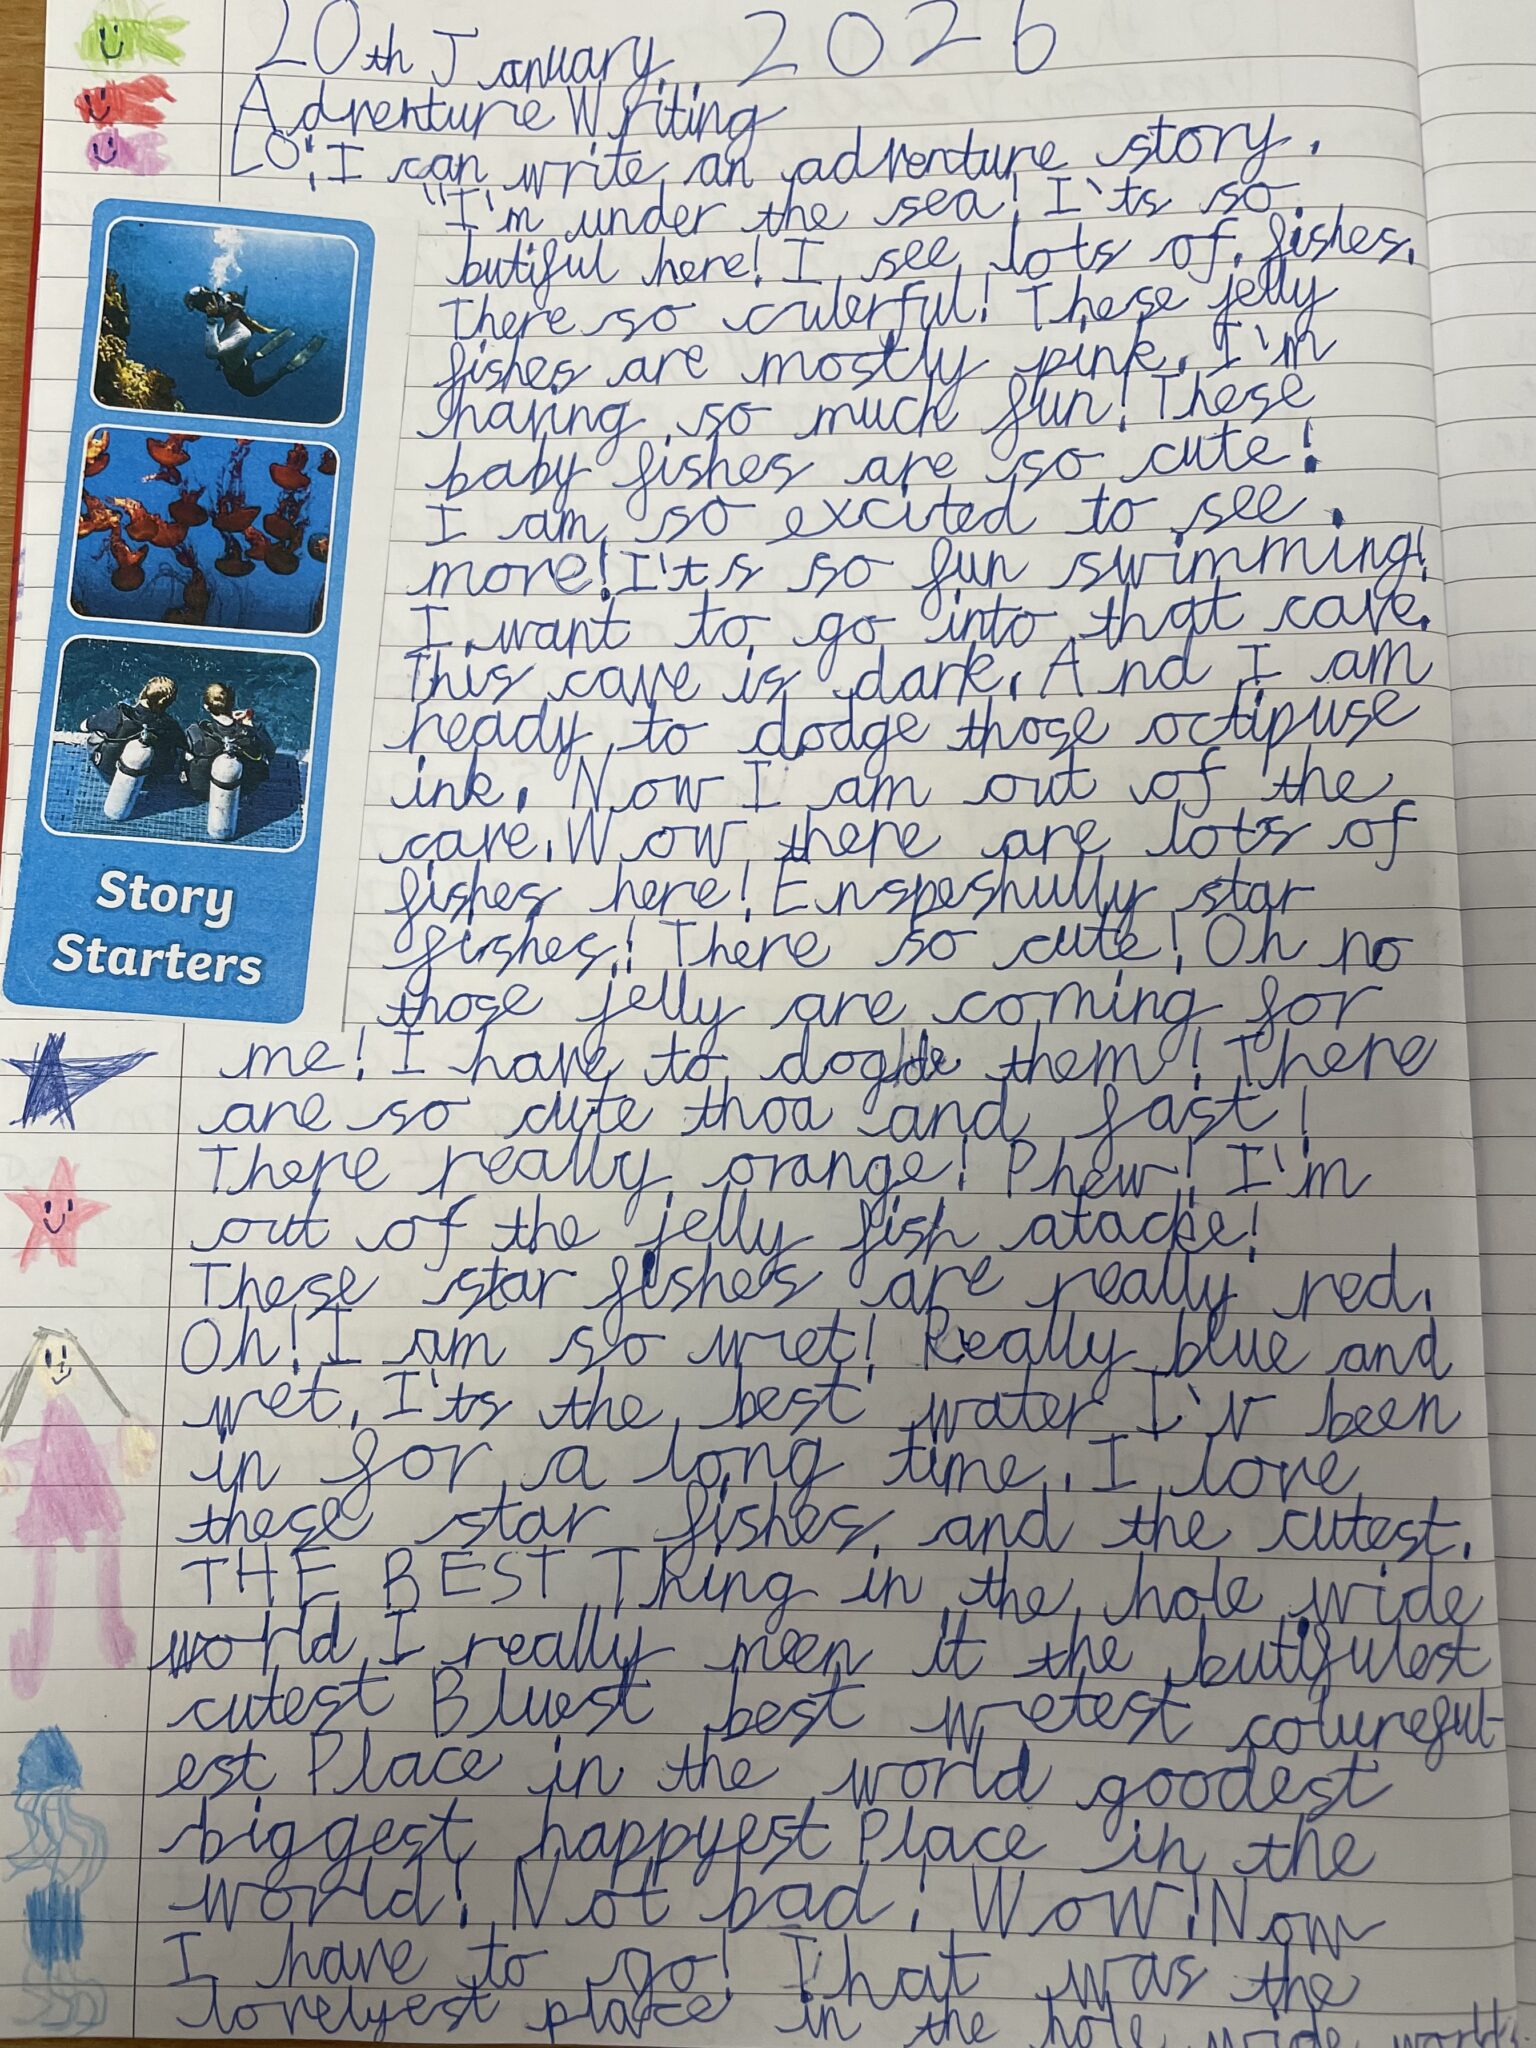 20th January 2026
Adventure Writing
LO: I can write an adventure story.
"I'm under the sea! I'ts so
butiful here! I see lots of fishes.
There so culerful! These jelly
fishes are mostly pink. I'm
having so much fun! These
baby fishes are so cute!
I am so excited to see
more! I'ts so fun swimming!
I want to go into that cave.
This cave is dark. And I am
ready to dodge those octipuse
ink. Now I am out of the
cave. Wow there are lots of
fishes here! Enspeshully star
fishes! There so cute! Oh no
those jelly are coming for
me! I have to them! There
are so cute thoa and fast!
There really orange! Phew! I'm
out of the jelly fish atacke!
These star fishes are really red.
Oh! I am so wet! Really blue and
wet. I'ts the best water I'v been
in for a long time. I love
these star fishes and the cutest.
THE BEST Thing in the hole wide
world I really meen it the butifulest
cutest Bluest best wetest colureful-
est Place in the world goodest
biggest happyest Place in the
world! Not bad! Wow! Now
I have to go! That was the
lovelyest place in the hole wide world
Story
Starters